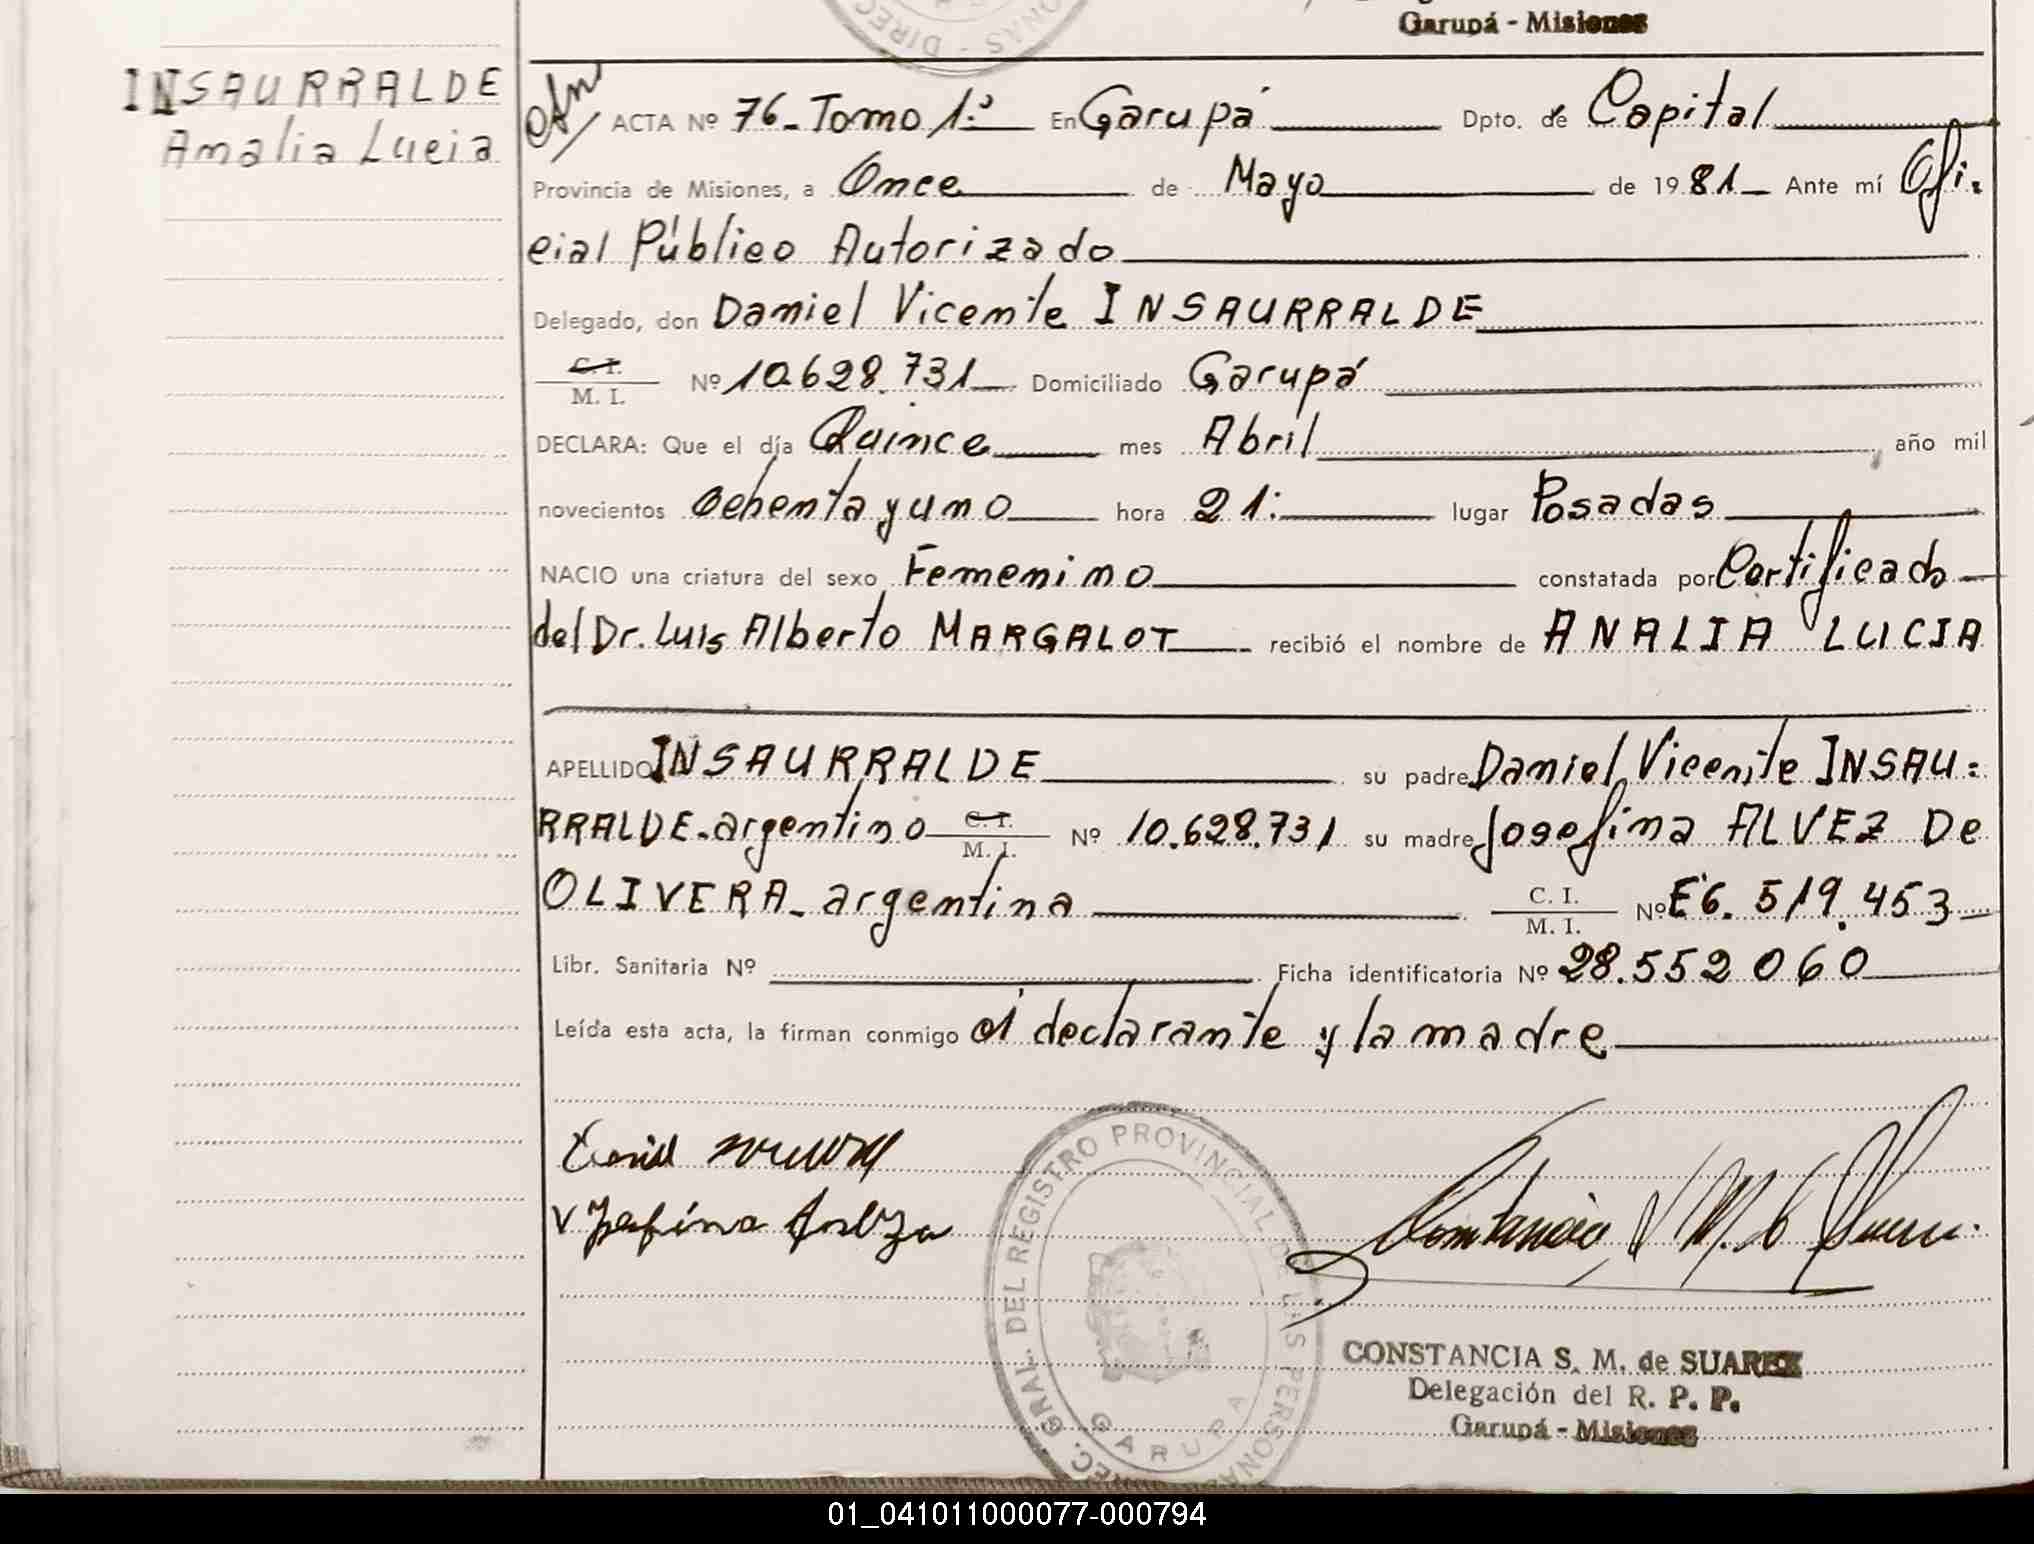 Garupá - Misiones
INSAURRALDE
Amalia Lucia
ACTA Nº 76_ Tomo 1º En Garupá Dpto. de Capital
Provincia de Misiones, a Once de Mayo de 1981_ Ante mí Ofi.
cial Público Autorizado
Delegado, don Daniel Vicente INSAURRALDE
C. I.
M. I. Nº 10.628.731 Domiciliado Garupá
DECLARA: Que el día Quince mes Abril año mil
novecientos Ochenta y uno hora 21: lugar Posadas
NACIO una criatura del sexo Femenino constatada por Certificado
del Dr. Luis Alberto MARGALOT recibió el nombre de ANALIA LUCIA
APELLIDO INSAURRALDE su padre Daniel Vicente INSAU=
RRALDE-argentino C. I. M. I. Nº 10.628.731 su madre Josefina ALVEZ De
OLIVERA_ argentina C. I. M. I. Nº E6.519.453
Libr. Sanitaria Nº Ficha identificatoria Nº 28.552060
Leída esta acta, la firman conmigo el declarante y la madre
DIREC. GRAL. DEL REGISTRO PROVINCIAL DE LAS PERSONAS
GARUPA
CONSTANCIA S. M. de SUAREZ
Delegación del R. P. P.
Garupá - Misiones
01_041011000077-000794